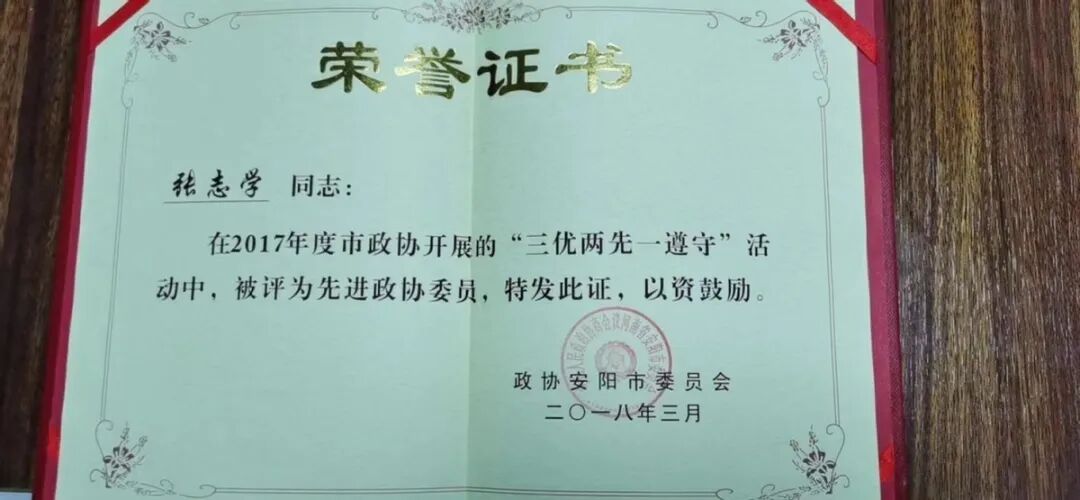 荣誉证书
张志学 同志：
在2017年度市政协开展的“三优两先一遵守”活
动中，被评为先进政协委员，特发此证，以资鼓励。
政协安阳市委员会
二〇一八年三月